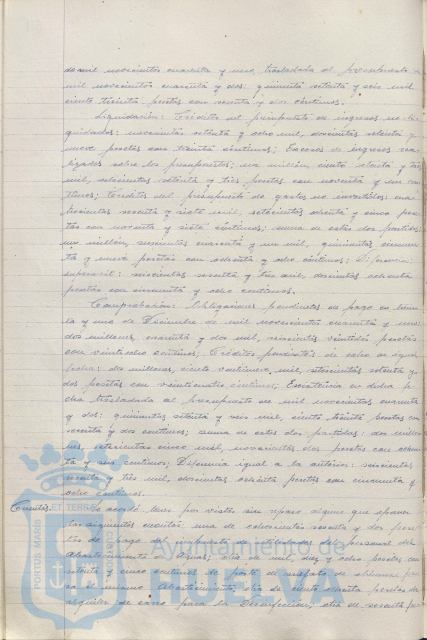 de mil novecientos cuarenta y uno, trasladada al presupuesto de
mil novecientos cuarenta y dos: quinientas setenta y seis mil
ciento treinta pesetas con sesenta y dos céntimos.
Liquidación: Crédito del presupuesto de ingresos no li-
quidados: novecientas setenta y ocho mil, doscientas setenta y
nueve pesetas con treinta céntimos; Excesos de ingresos rea-
lizados sobre los presupuestos; un millón, ciento setenta y tres
mil, setecientas setenta y tres pesetas con noventa y un cén-
timos; Créditos del presupuesto de gastos no invertidos: cua-
trocientas sesenta y siete mil, setecientas ochenta y cinco pese-
tas con noventa y siete céntimos; suma de estas dos partidas:
un millón, seiscientas cuarenta y un mil, quinientas cincuen-
ta y nueve pesetas con ochenta y ocho céntimos; Diferencia
superavit: seiscientas sesenta y tres mil, doscientas ochenta
pesetas con cincuenta y ocho céntimos.
Comprobación: Obligaciones pendientes de pago en trein-
ta y uno de Diciembre de mil novecientos cuarenta y uno:
dos millones, cuarenta y dos mil, seiscientas veintidós pesetas
con veintiocho céntimos; Créditos pendientes de cobro en igual
fecha: dos millones, ciento veintinueve mil, setecientas setenta y
dos pesetas con veinticuatro céntimos; Existencia en dicha fe-
cha trasladada al presupuesto de mil novecientos cuarenta
y dos: quinientas setenta y seis mil, ciento treinta pesetas con
sesenta y dos céntimos; suma de estas dos partidas: dos millo-
nes, setecientas cinco mil, novecientas dos pesetas con ochen-
ta y seis céntimos; Diferencia igual a la anterior: seiscientas
sesenta y tres mil, doscientas ochenta pesetas con cincuenta y
ocho céntimos.
Cuentas. Se acordó tener por vistas sin reparo alguno que oponer
las siguientes cuentas: una de ochocientas sesenta y dos pese-
tas de pago del impuesto de utilidades del personal del
Abastecimiento de Aguas; otra de mil, diez y ocho pesetas con
setenta y cinco céntimos de
para el mismo Abastecimiento; otra de ciento cuenta pesetas de
alquiler de carro para la Desinfección; otra de sesenta pe-
PORTUS MARIS ET TERRAE CUSTODIA
Ayuntamiento de
HUELVA